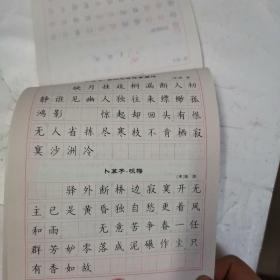 缺月挂疏桐漏断人初
静谁见幽人独往来缥缈孤
鸿影惊起却回头有恨
无人省拣尽寒枝不肯栖寂
寞沙洲冷
卜算子·咏梅
[宋]陆游
驿外断桥边寂寞开无
主已是黄昏独自愁更着风
和雨无意苦争春一任
群芳妒零落成泥碾作尘只
有香如故